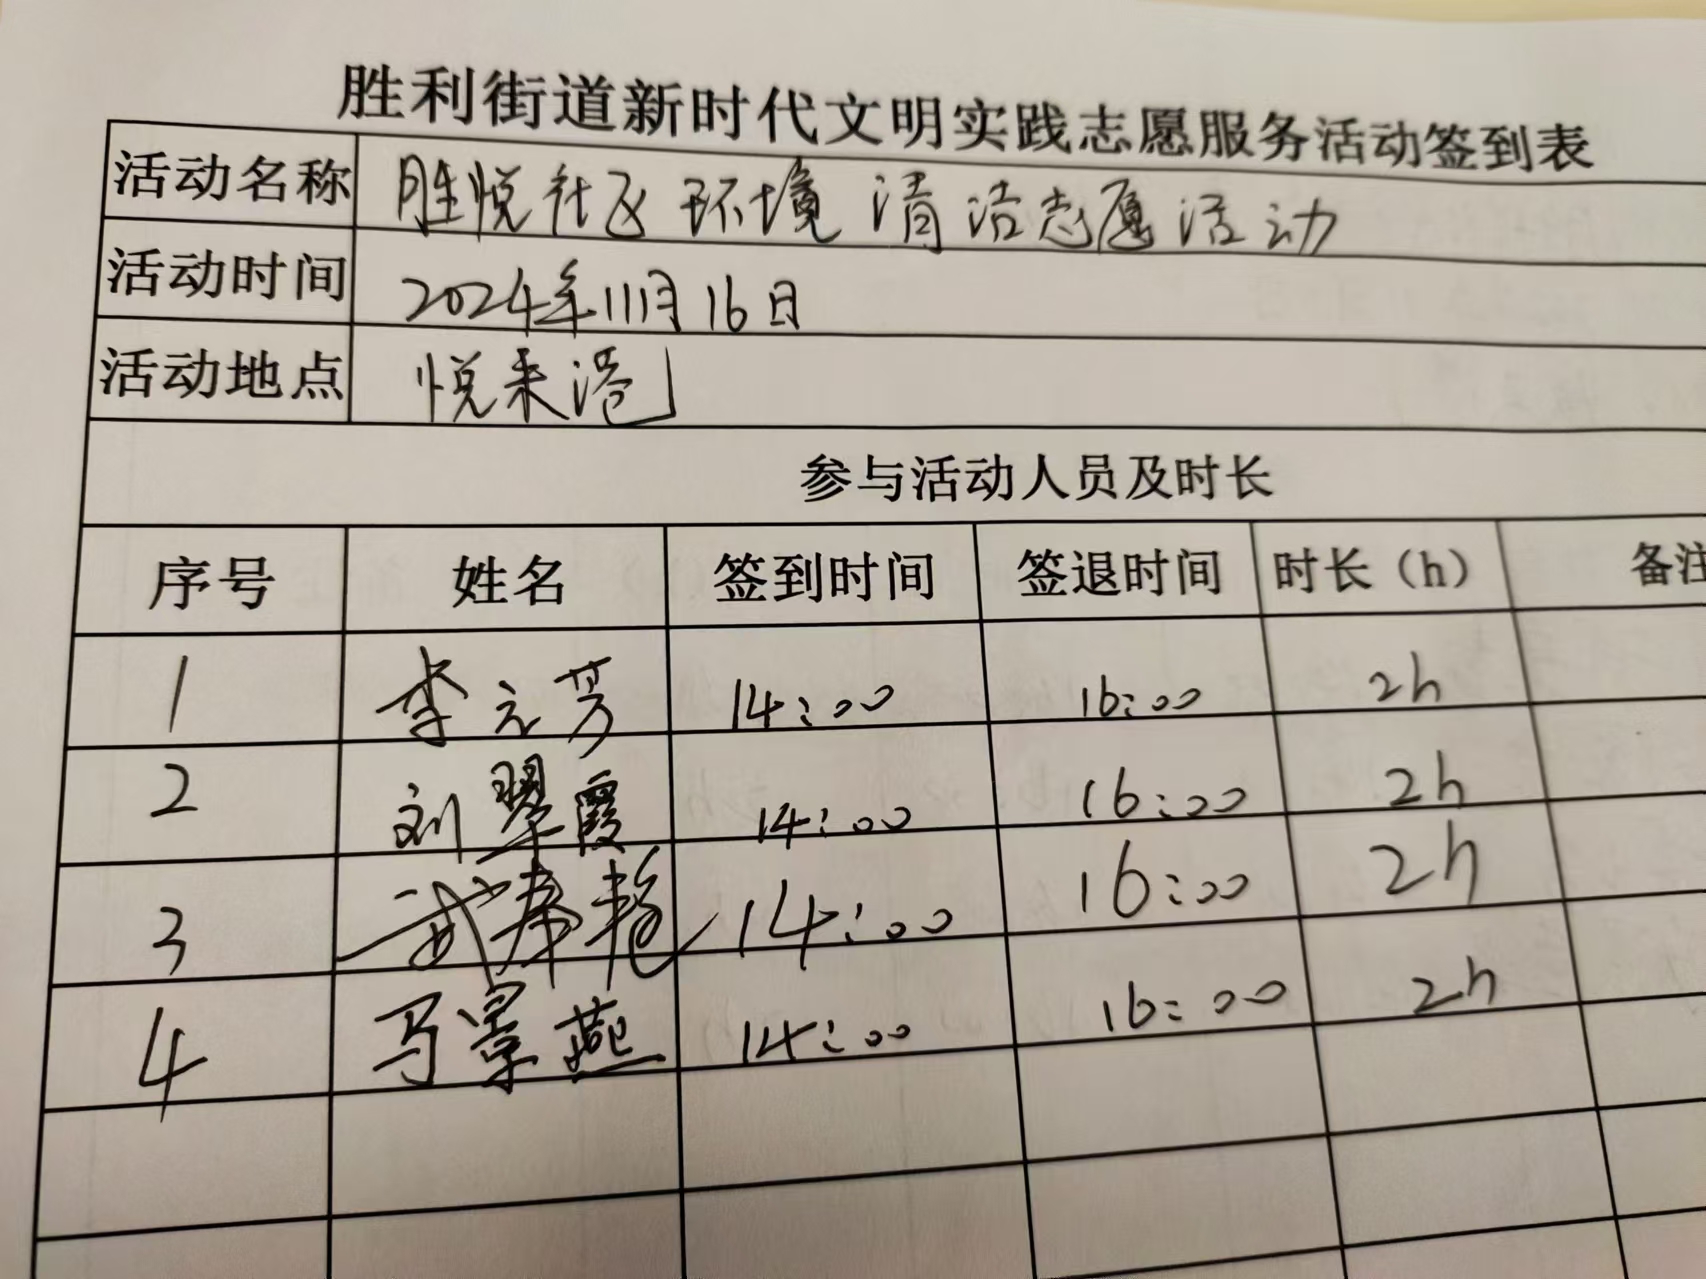 胜利街道新时代文明实践志愿服务活动签到表
活动名称 胜悦社区环境清洁志愿活动
活动时间 2024年11月16日
活动地点 悦来港
参与活动人员及时长
序号 姓名 签到时间 签退时间 时长（h） 备注
1 李元芳 14:00 16:00 2h
2 刘翠霞 14:00 16:00 2h
3 武春艳 14:00 16:00 2h
4 马景燕 14:00 16:00 2h